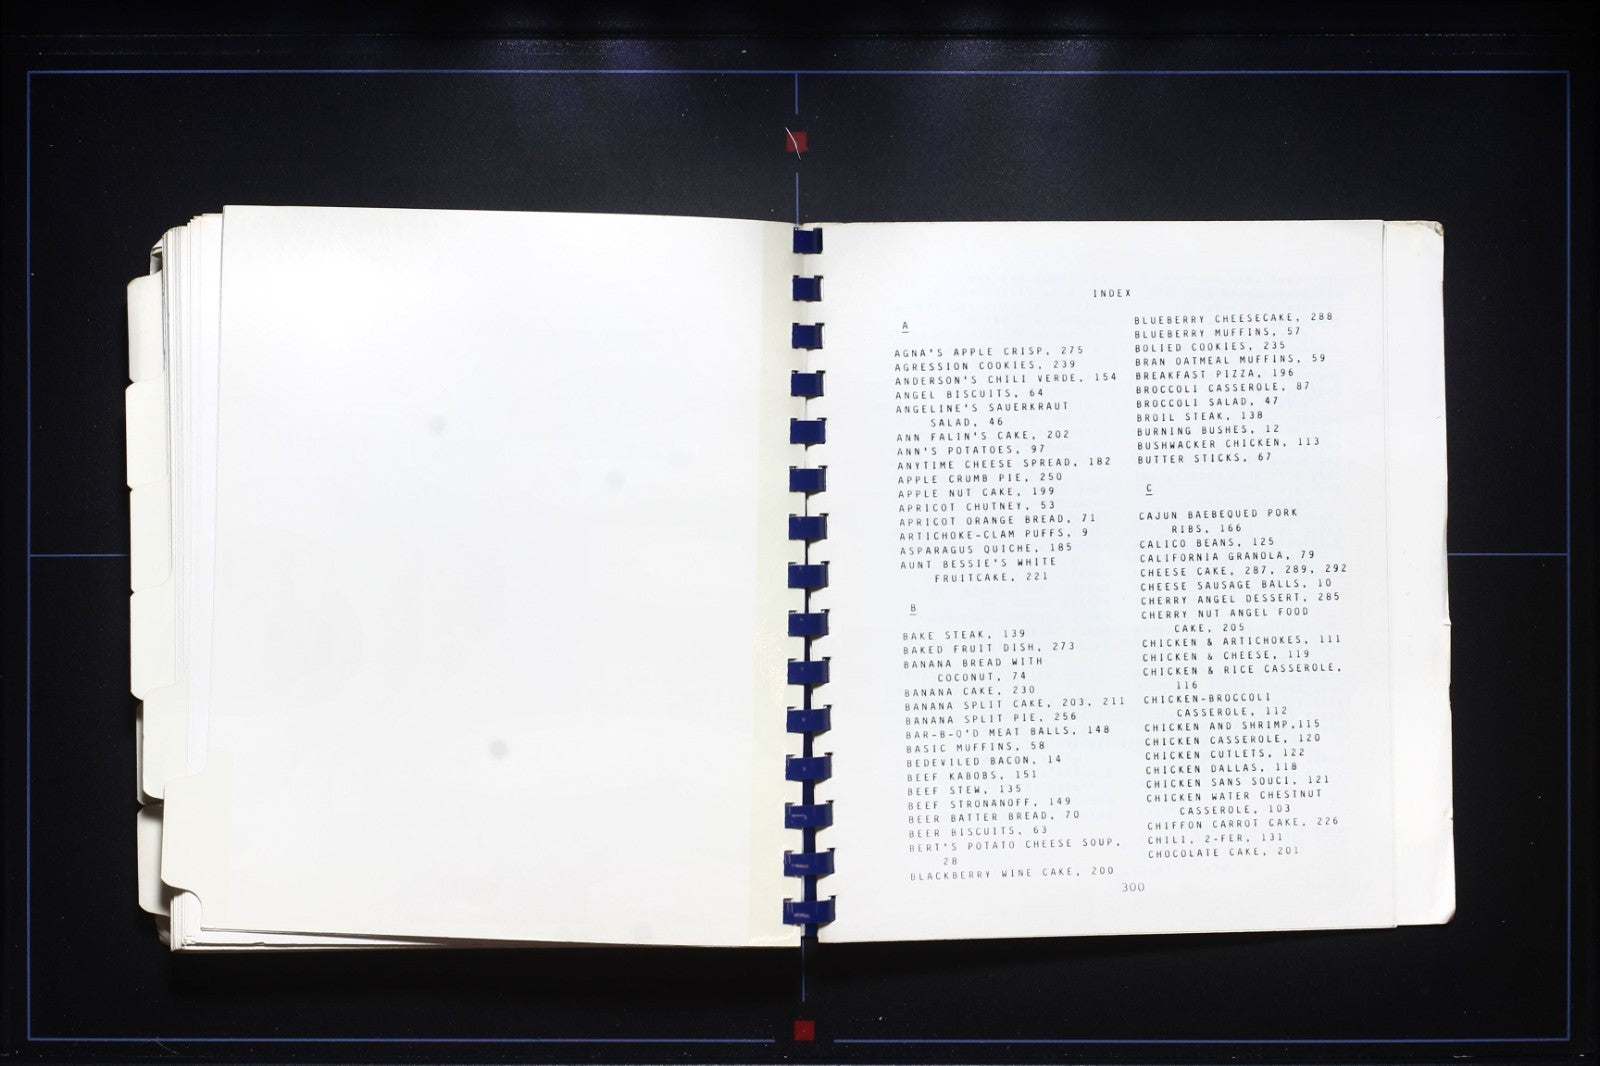 INDEX
A
AGNA'S APPLE CRISP, 275
AGRESSION COOKIES, 239
ANDERSON'S CHILI VERDE, 154
ANGEL BISCUITS, 64
ANGELINE'S SAUERKRAUT
SALAD, 46
ANN FALIN'S CAKE, 202
ANN'S POTATOES, 97
ANYTIME CHEESE SPREAD, 182
APPLE CRUMB PIE, 250
APPLE NUT CAKE, 199
APRICOT CHUTNEY, 53
APRICOT ORANGE BREAD, 71
ARTICHOKE-CLAM PUFFS, 9
ASPARAGUS QUICHE, 185
AUNT BESSIE'S WHITE
FRUITCAKE, 221
B
BAKE STEAK, 139
BAKED FRUIT DISH, 273
BANANA BREAD WITH
COCONUT, 74
BANANA CAKE, 230
BANANA SPLIT CAKE, 203, 211
BANANA SPLIT PIE, 256
BAR-B-Q'D MEAT BALLS, 148
BASIC MUFFINS, 58
BEDEVILED BACON, 14
BEEF KABOBS, 151
BEEF STEW, 135
BEEF STRONANOFF, 149
BEER BATTER BREAD, 70
BEER BISCUITS, 63
BERT'S POTATO CHEESE SOUP,
28
BLACKBERRY WINE CAKE, 200
BLUEBERRY CHEESECAKE, 288
BLUEBERRY MUFFINS, 57
BOLIED COOKIES, 235
BRAN OATMEAL MUFFINS, 59
BREAKFAST PIZZA, 196
BROCCOLI CASSEROLE, 87
BROCCOLI SALAD, 47
BROIL STEAK, 138
BURNING BUSHES, 12
BUSHWACKER CHICKEN, 113
BUTTER STICKS, 67
C
CAJUN BAEBEQUED PORK
RIBS, 166
CALICO BEANS, 125
CALIFORNIA GRANOLA, 79
CHEESE CAKE, 287, 289, 292
CHEESE SAUSAGE BALLS, 10
CHERRY ANGEL DESSERT, 285
CHERRY NUT ANGEL FOOD
CAKE, 205
CHICKEN & ARTICHOKES, 111
CHICKEN & CHEESE, 119
CHICKEN & RICE CASSEROLE,
116
CHICKEN-BROCCOLI
CASSEROLE, 112
CHICKEN AND SHRIMP,115
CHICKEN CASSEROLE, 120
CHICKEN CUTLETS, 122
CHICKEN DALLAS, 118
CHICKEN SANS SOUCI, 121
CHICKEN WATER CHESTNUT
CASSEROLE, 103
CHIFFON CARROT CAKE, 226
CHILI, 2-FER, 131
CHOCOLATE CAKE, 201
300